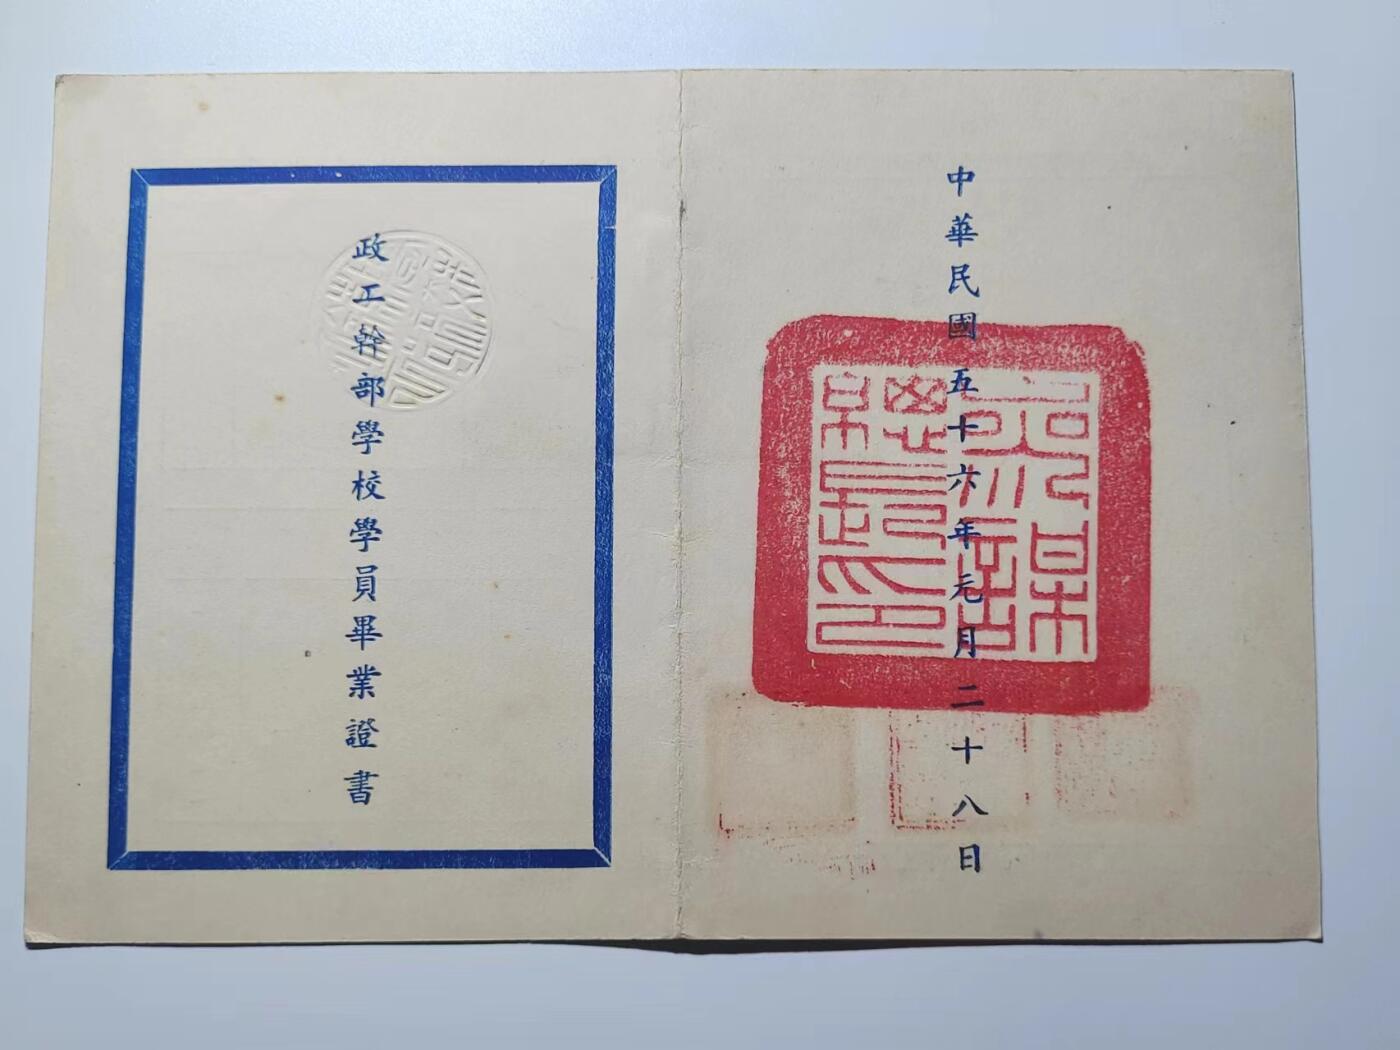 政工幹部學校學員畢業證書
中華民國五十六年元月二十八日
參謀
總長印